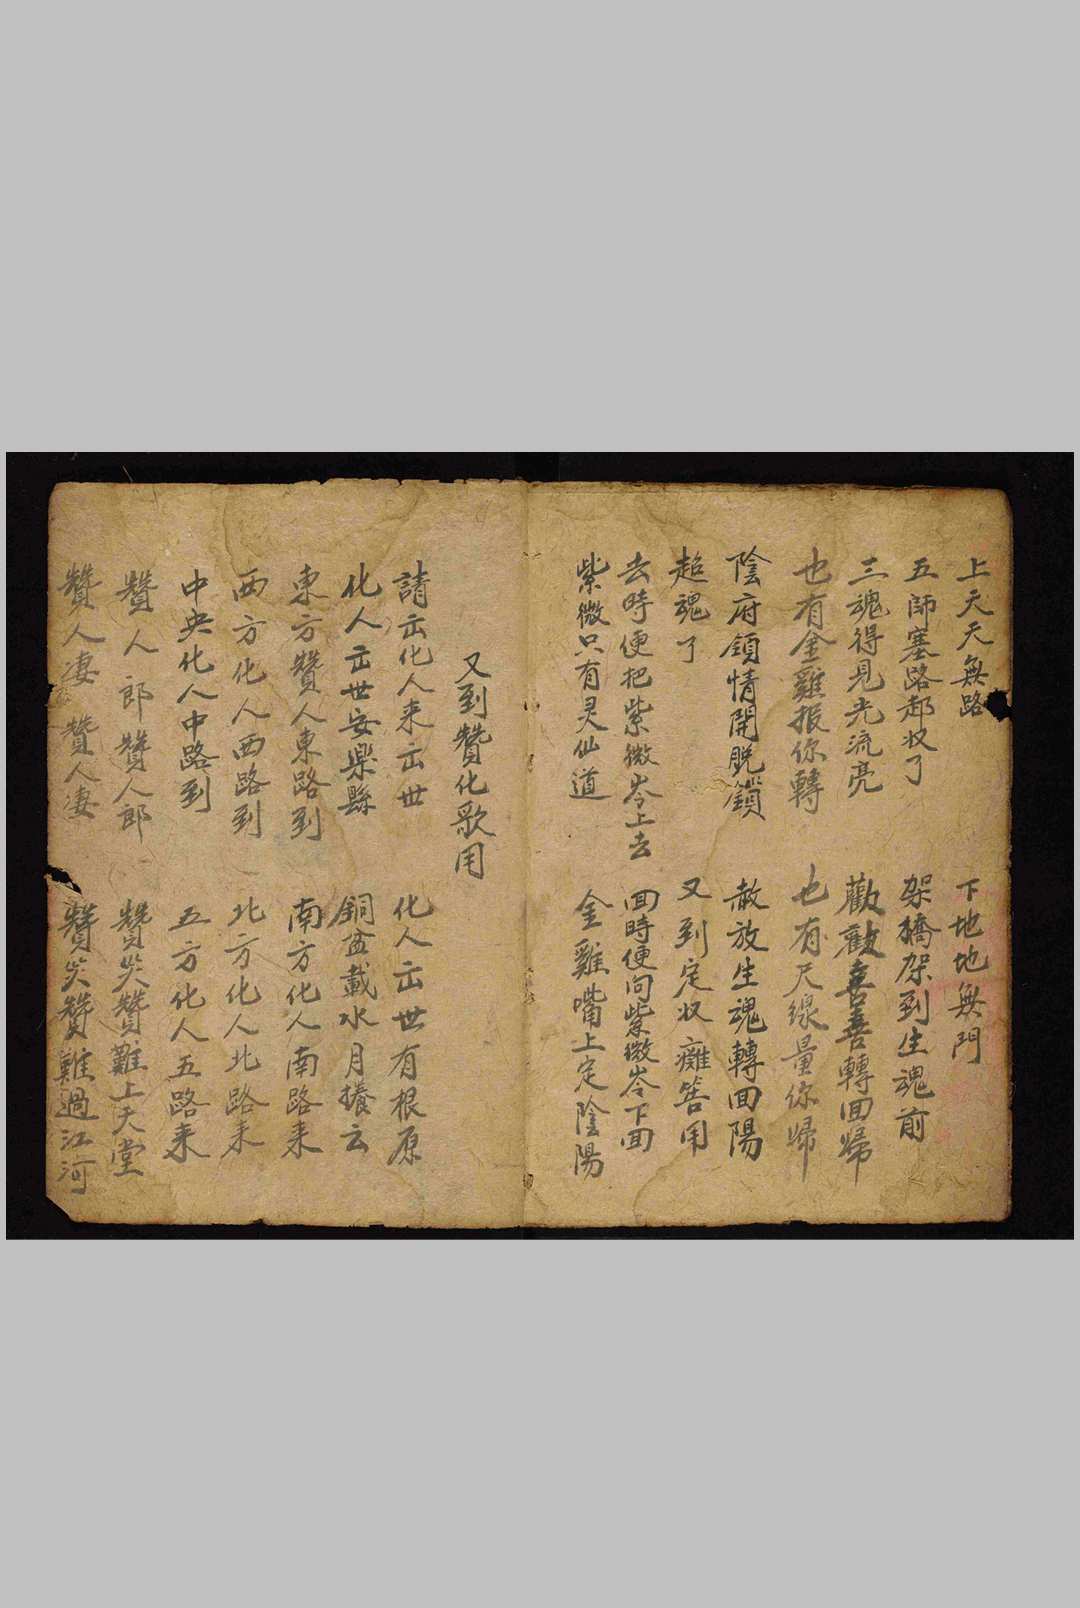 上天天無路 下地地無門
五師塞路都收了 架橋架到生魂前
三魂得見光流亮 勸歡喜善轉回歸
也有金雞报你轉 也有尺線量你歸
陰府領情開脫鎖 赦放生魂轉回陽
超魂了 又到定收癱筶用
去時便把紫微岺上去 回時便问紫微岺下回
紫微只有灵仙道 金雞嘴上定陰陽
又到贊化歌用
請出化人来出世 化人出世有根原
化人出世安樂縣 銅盆載水月攁云
東方贊人東路到 南方化人南路来
西方化人西路到 北方化人北路来
中央化人中路到 五方化人五路来
贊人郎贊人郎 贊災贊難上天堂
贊人凄贊人凄 贊災贊難過江河